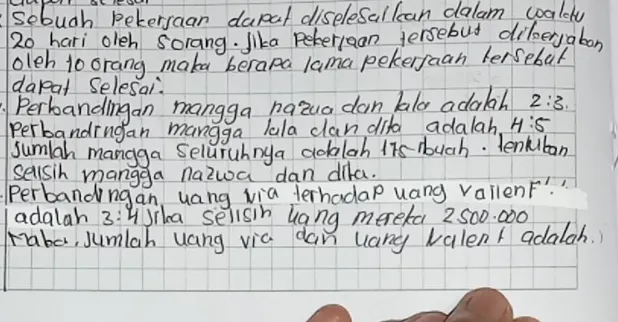 Sebuah Pekerjaan dapat diselesaikan dalam waktu
20 hari oleh 5 orang. Jika Pekerjaan tersebut dikerjakan
oleh 10 orang maka berapa lama pekerjaan tersebut
dapat selesai.
Perbandingan mangga nazwa dan lala adalah 2:3.
Perbandingan mangga lala dan dita adalah 4:5
Jumlah mangga seluruhnya adalah 175 buah. tentukan
selisih mangga nazwa dan dita.
Perbandingan uang via terhadap uang valient
adalah 3:4 Jika selisih uang mereka 2 500.000
maka, Jumlah uang via dan uang valent adalah.